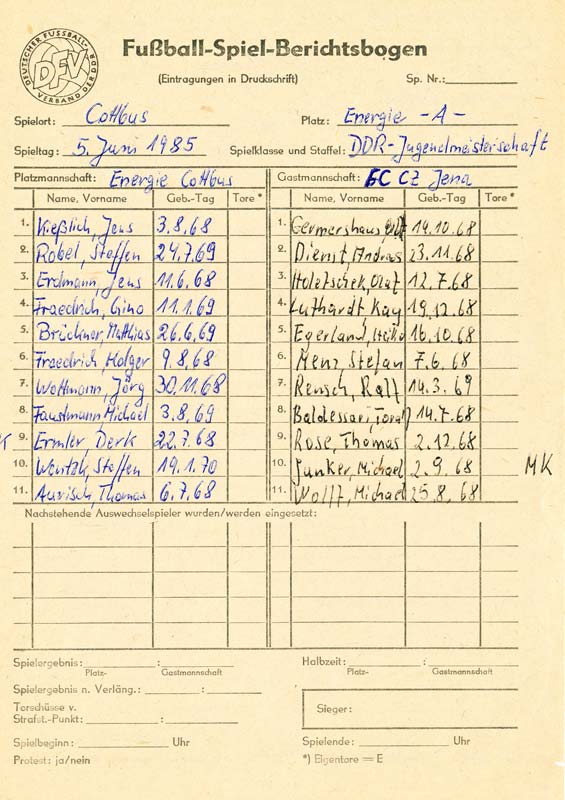 DEUTSCHER FUSSBALL-VERBAND DER DDR
DFV
Fußball-Spiel-Berichtsbogen
(Eintragungen in Druckschrift) Sp. Nr.:
Spielort: Cottbus Platz: Energie -A-
Spieltag: 5. Juni 1985 Spielklasse und Staffel: DDR-Jugendmeisterschaft
Platzmannschaft: Energie Cottbus Gastmannschaft: FC CZ Jena
Name, Vorname Geb.-Tag Tore * Name, Vorname Geb.-Tag Tore *
1. Kießlich, Jens 3.8.68 1. Germershaus, 14.10.68
2. Robel, Steffen 24.7.69 2. Dienst, Andreas 23.11.68
3. Erdmann, Jens 11.6.68 3. Holetschek, Olaf 12.7.68
4. Fraedrich, Gino 11.1.69 4. Luthardt, Kay 19.12.68
5. Brückner, Matthias 26.6.69 5. Egerland, 16.10.68
6. Fraedrich, Holger 9.8.68 6. Menz, Stefan 7.6.68
7. Wottmann, Jörg 30.11.68 7. Rensch, Ralf 14.3.69
8. Faustmann, Michael 3.8.69 8. Baldessari, 14.7.68
K 9. Ermler, Derk 22.7.68 9. Rose, Thomas 2.12.68
10. Wentzk, Steffen 19.1.70 10. Junker, Michael 2.9.68 MK
11. Aurisch, Thomas 6.7.68 11. Wolff, Michael 25.8.68
Nachstehende Auswechselspieler wurden/werden eingesetzt:
Spielergebnis: : Halbzeit: :
Platz- Gastmannschaft Platz- Gastmannschaft
Spielergebnis n. Verläng.: :
Torschüsse v.
Strafst.-Punkt: : Sieger:
Spielbeginn: Uhr Spielende: Uhr
Protest: ja/nein *) Eigentore = E